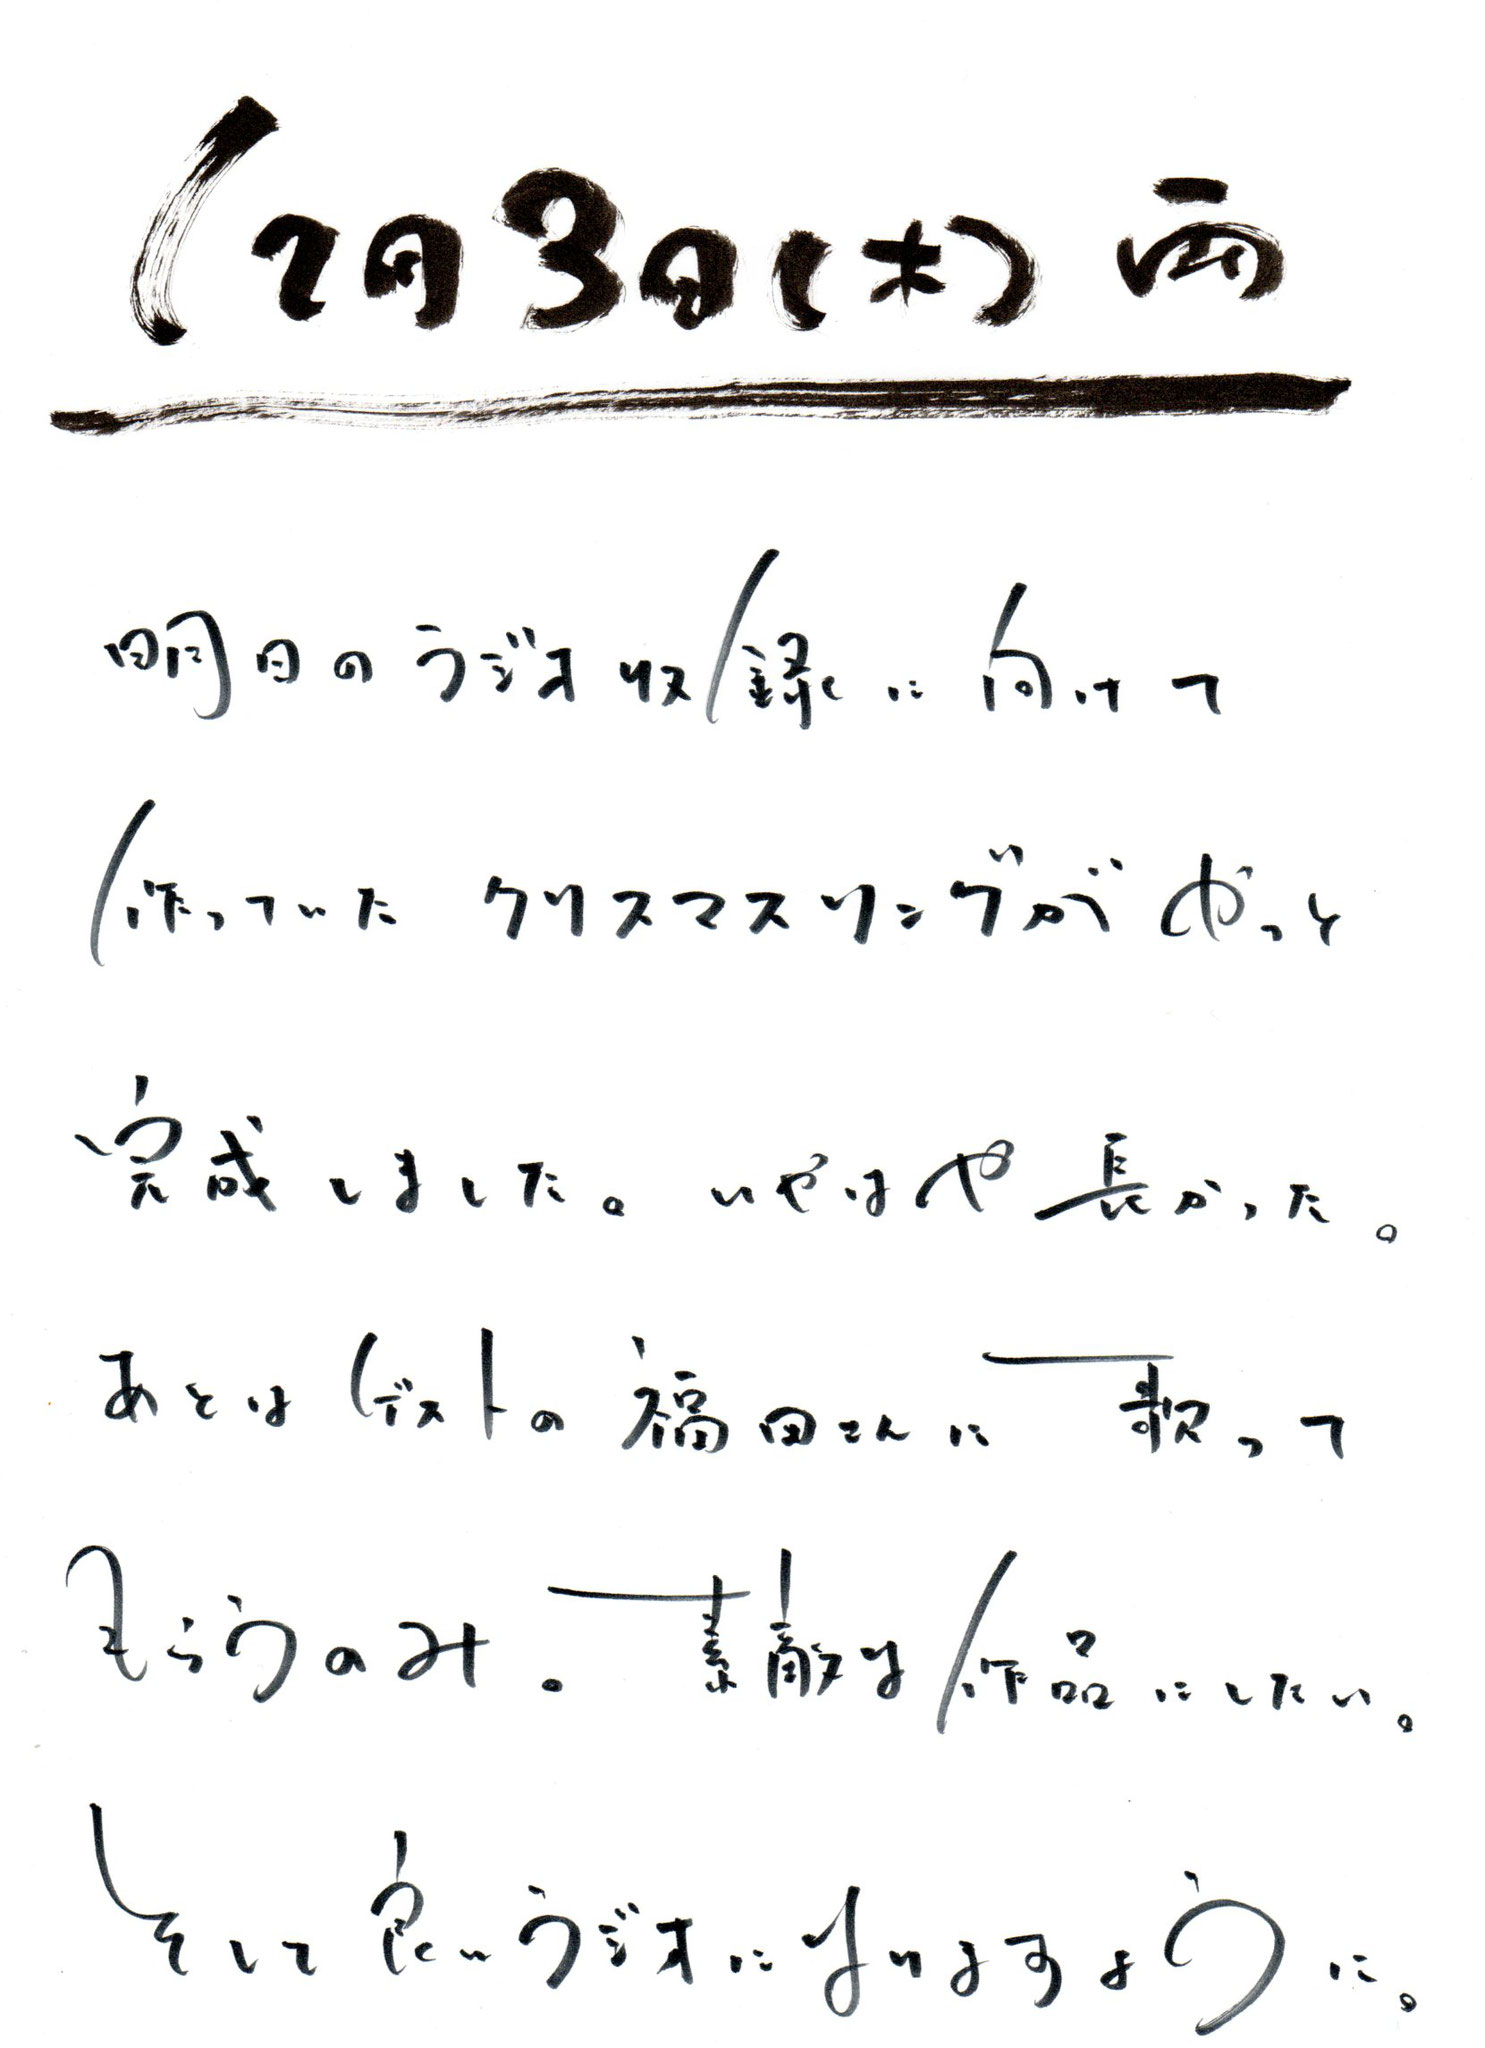 12月3日(木) 雨
明日のラジオ収録に向けて
作っていた クリスマスソングが やっと
完成しました。いやはや 長かった。
あとは ゲストの 福田さんに 歌って
もらうのみ。素敵な作品にしたい。
そして 良いラジオになりますように。